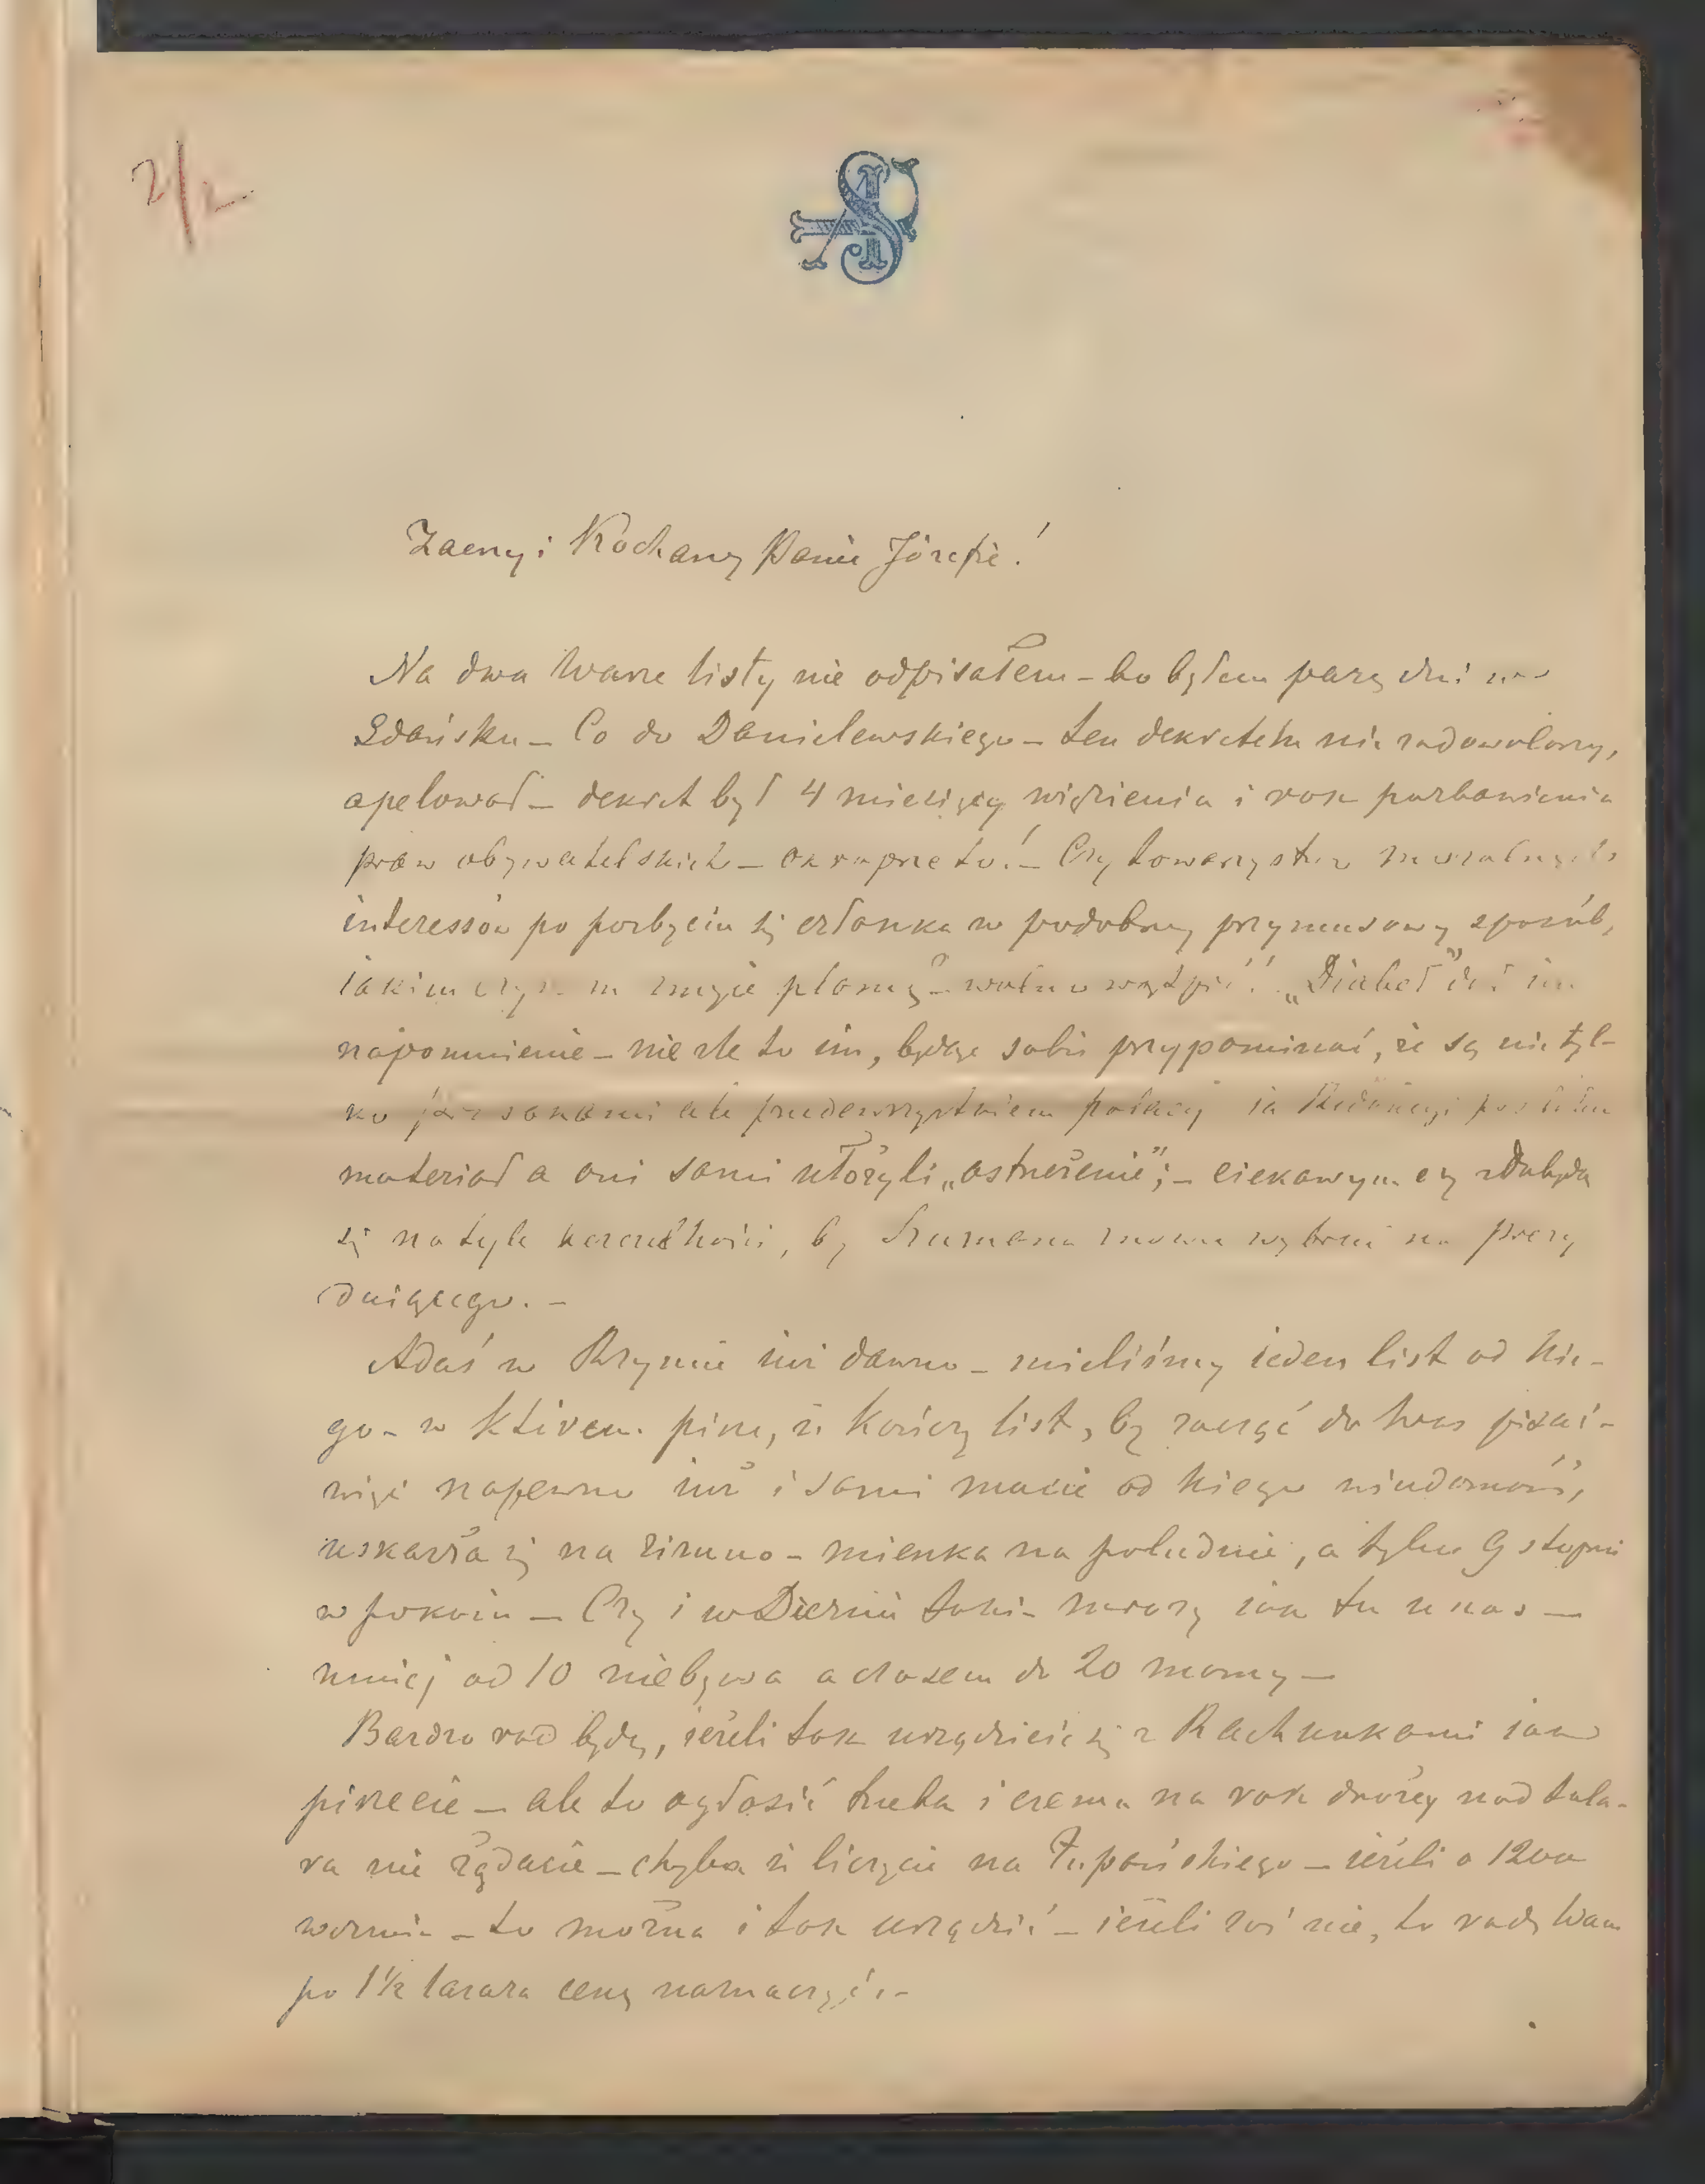 2/2
Zacny i Kochany Panie Józefie!
Na dwa Wasze listy nie odpisałem – bo byłem parę dni w
Gdańsku – Co do Danielewskiego – ten dekretem nie zadowolony,
apelował – dekret był 4 miesięcy więzienia i rok pozbawienia
praw obywatelskich – – Czy towarzystwo moralnych
interessów po pozbyciu się członka w podobny przymusowy sposób,
płonię – wolno wątpić! „Diabeł” dał im
napomnienie – nie źle to im, będzie sobie przypominać, że są nie tyl-
ko ale przedewszystkiem polacy ia Redakcyi posłałem
materiał a oni sami ułożyli „ostrzeżenie”; – ciekawym czy zdobędą
się na tyle, by Szumana znowu wybrać na przew
odniczącego. –
Adaś w Rzymie iuż dawno – mieliśmy ieden list od Nie-
go – w którem pisze, że kończy list, by zacząć do Was pisać –
więc napewno iuż i sami macie od Niego wiadomość,
uskarża się na zimno – mieszka na południe, a tylko 9 stopni
w pokoiu – Czy i w Dreźnie takie mrozy iak tu u nas –
mniej od 10 niebywa a czasem do 20 mamy –
Bardzo rad będę, ieżeli tak urządzicie się z Rachunkami iak
piszecie – ale to ogłosić trzeba i czemu na rok drożej nad tala-
ra nie żądacie – chyba że liczycie na Żupańskiego – ieżeli o 1200
weźmie – to można i tak urządzić – ieżeli zaś nie, to radzę Wam
po 1½ talara cenę naznaczyć. –